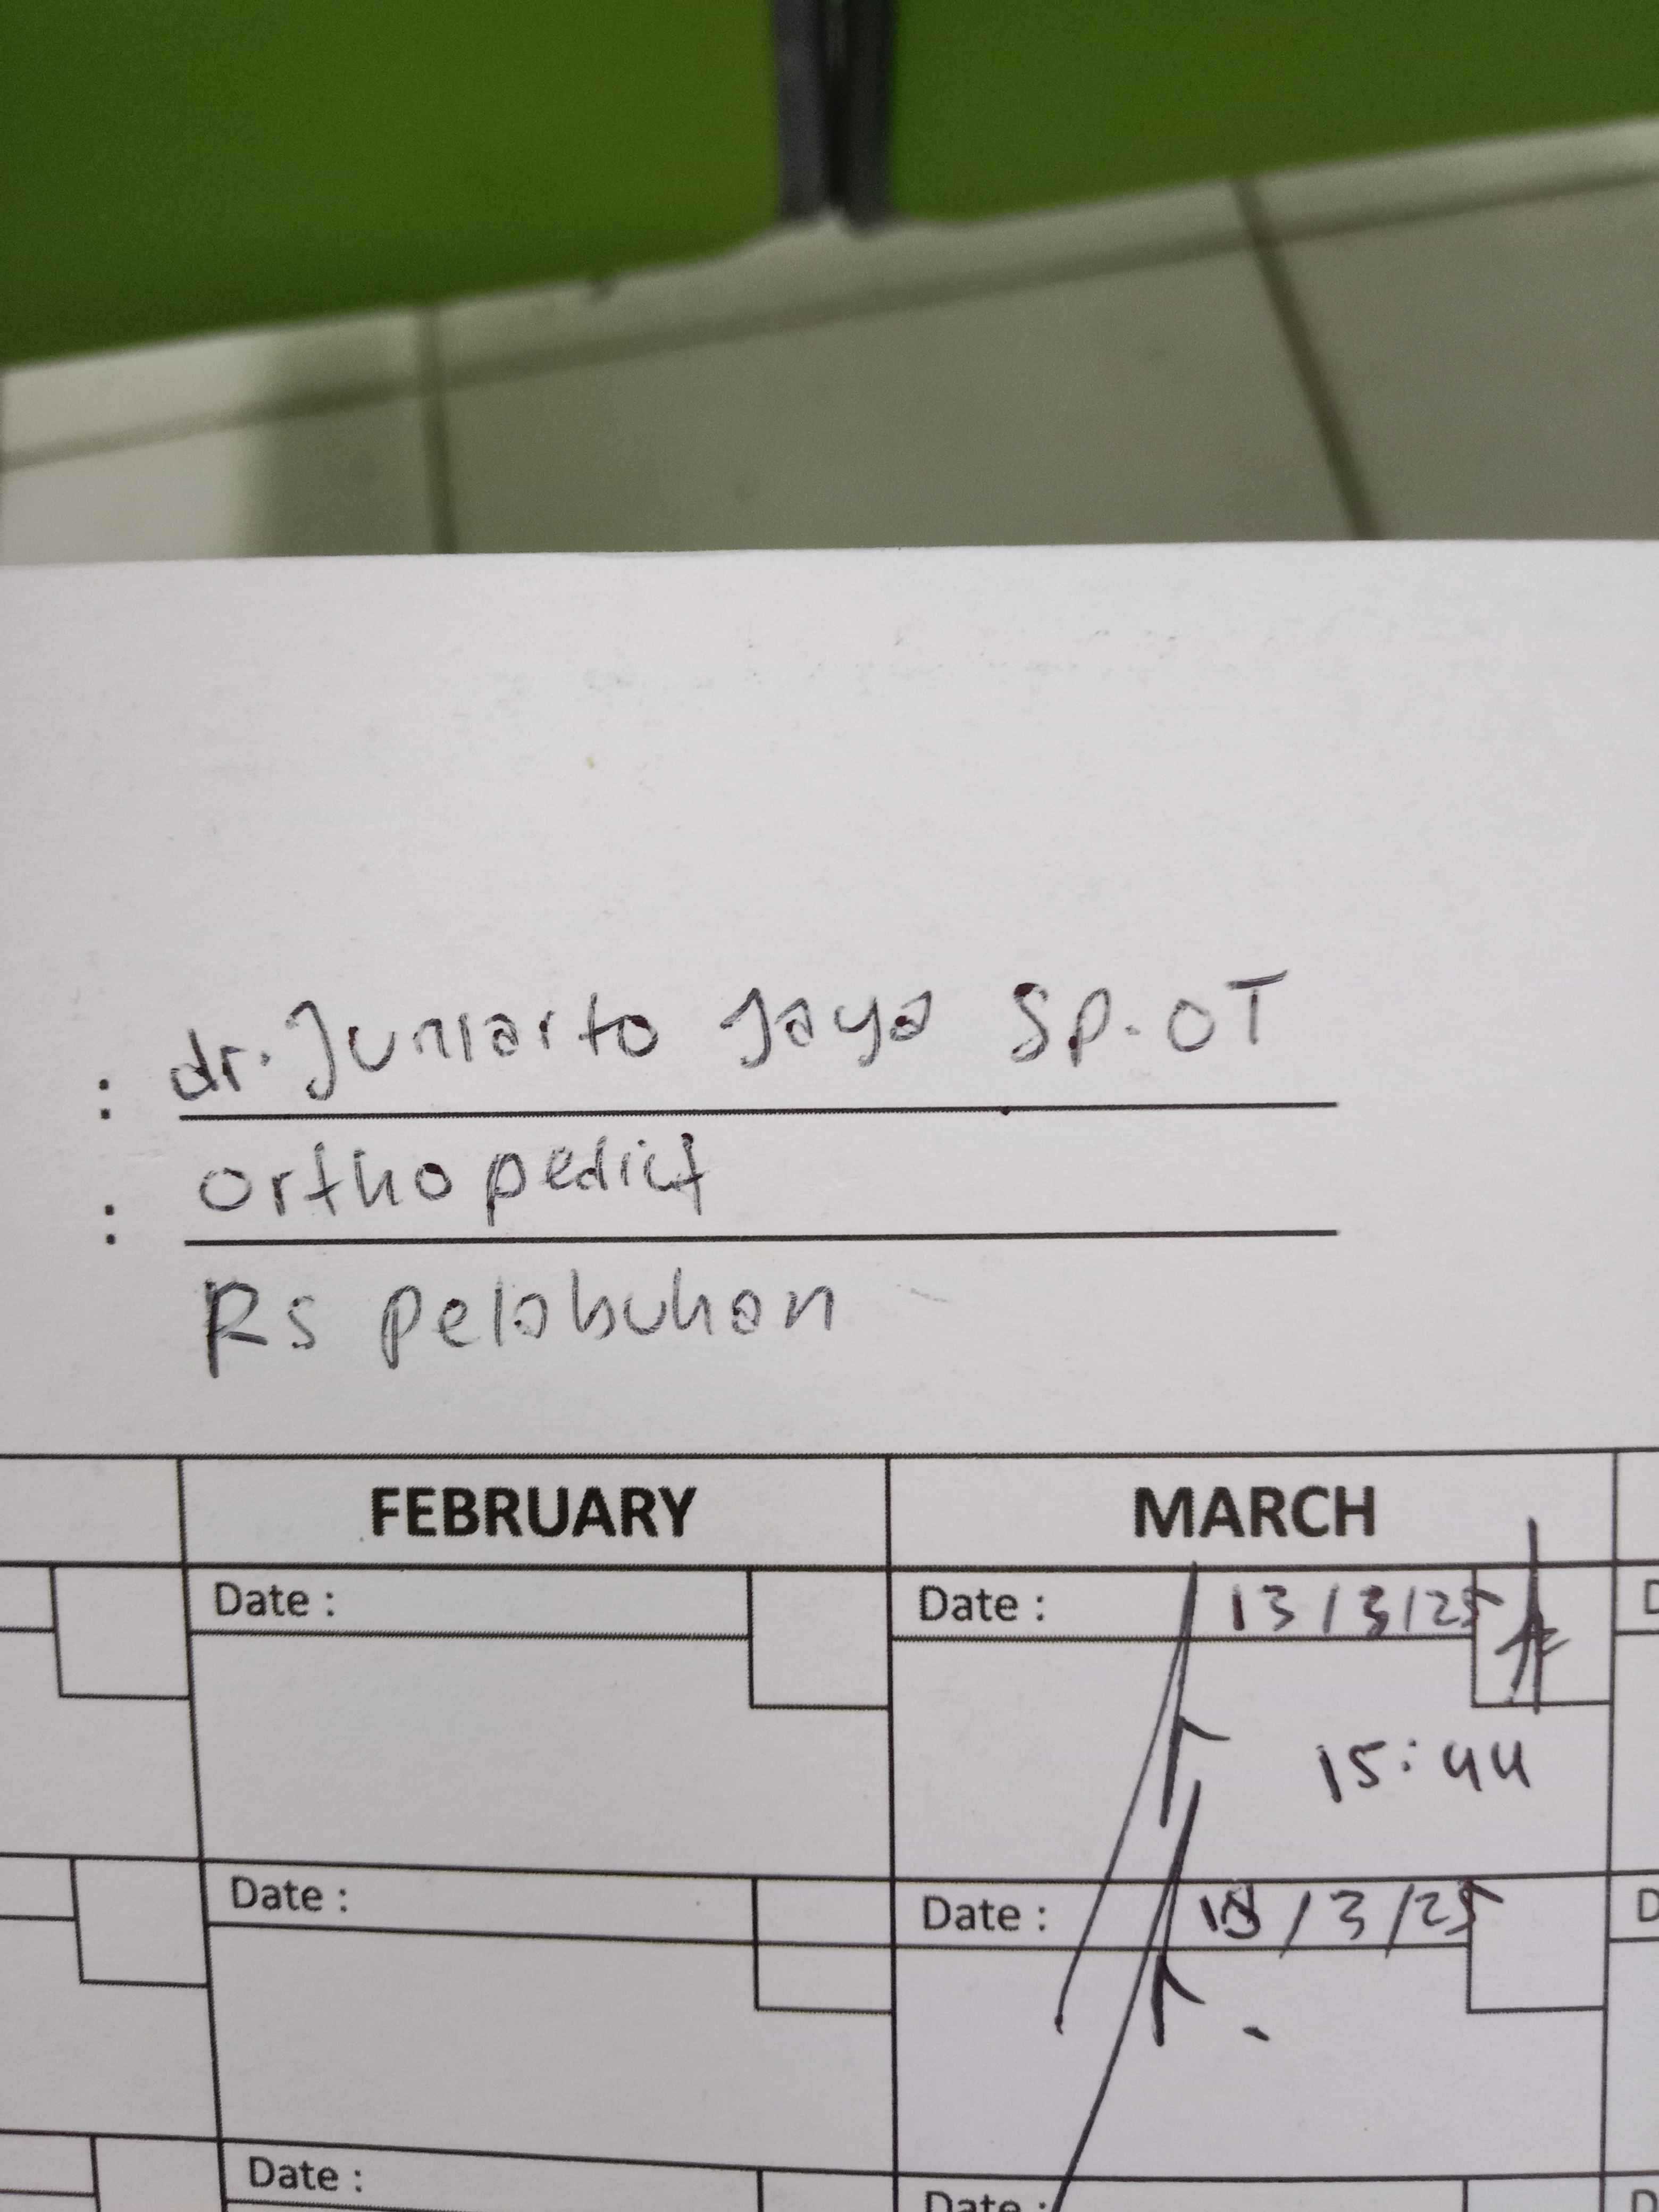 : dr. Juniarto Jaya Sp.OT
: Orthopedict
Rs Pelabuhan
FEBRUARY MARCH
Date : Date : 13/3/25
15:44
Date : Date : 18/3/25
Date : Date :